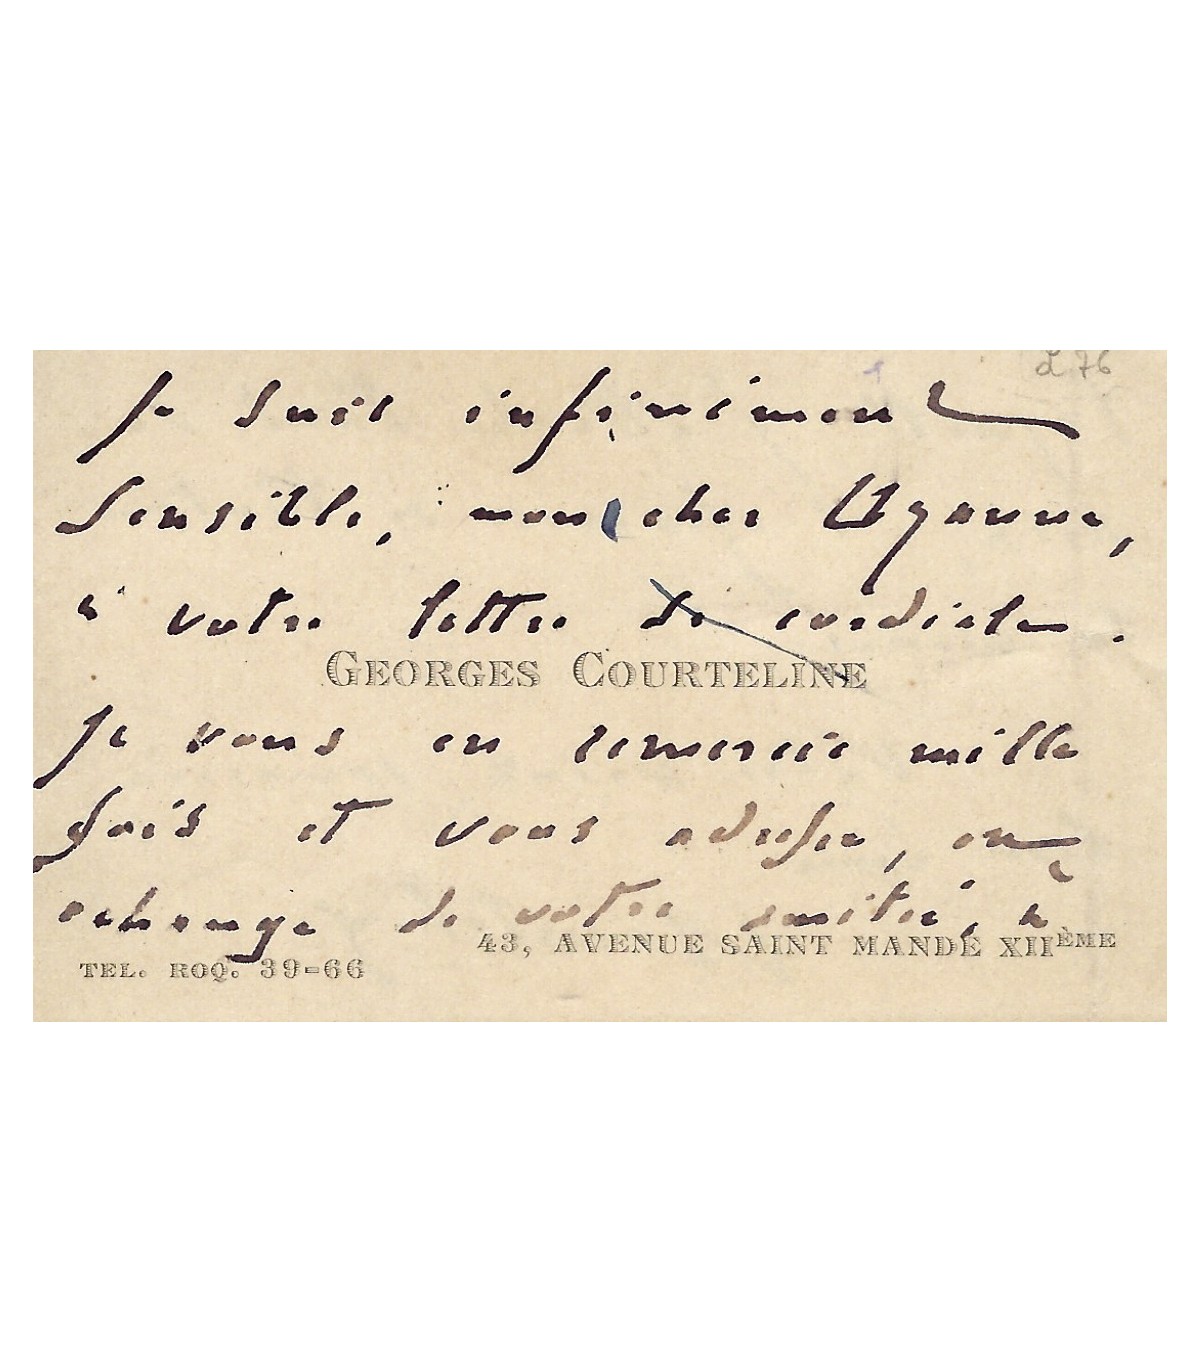 d 76
Je suis infiniment
sensible, mon cher Uzanne,
à votre lettre si cordiale.
GEORGES COURTELINE
Je vous en remercie mille
fois et vous adresse, en
echange de votre amitié, à
43, AVENUE SAINT MANDÉ XIIÈME
TEL. ROQ. 39-66